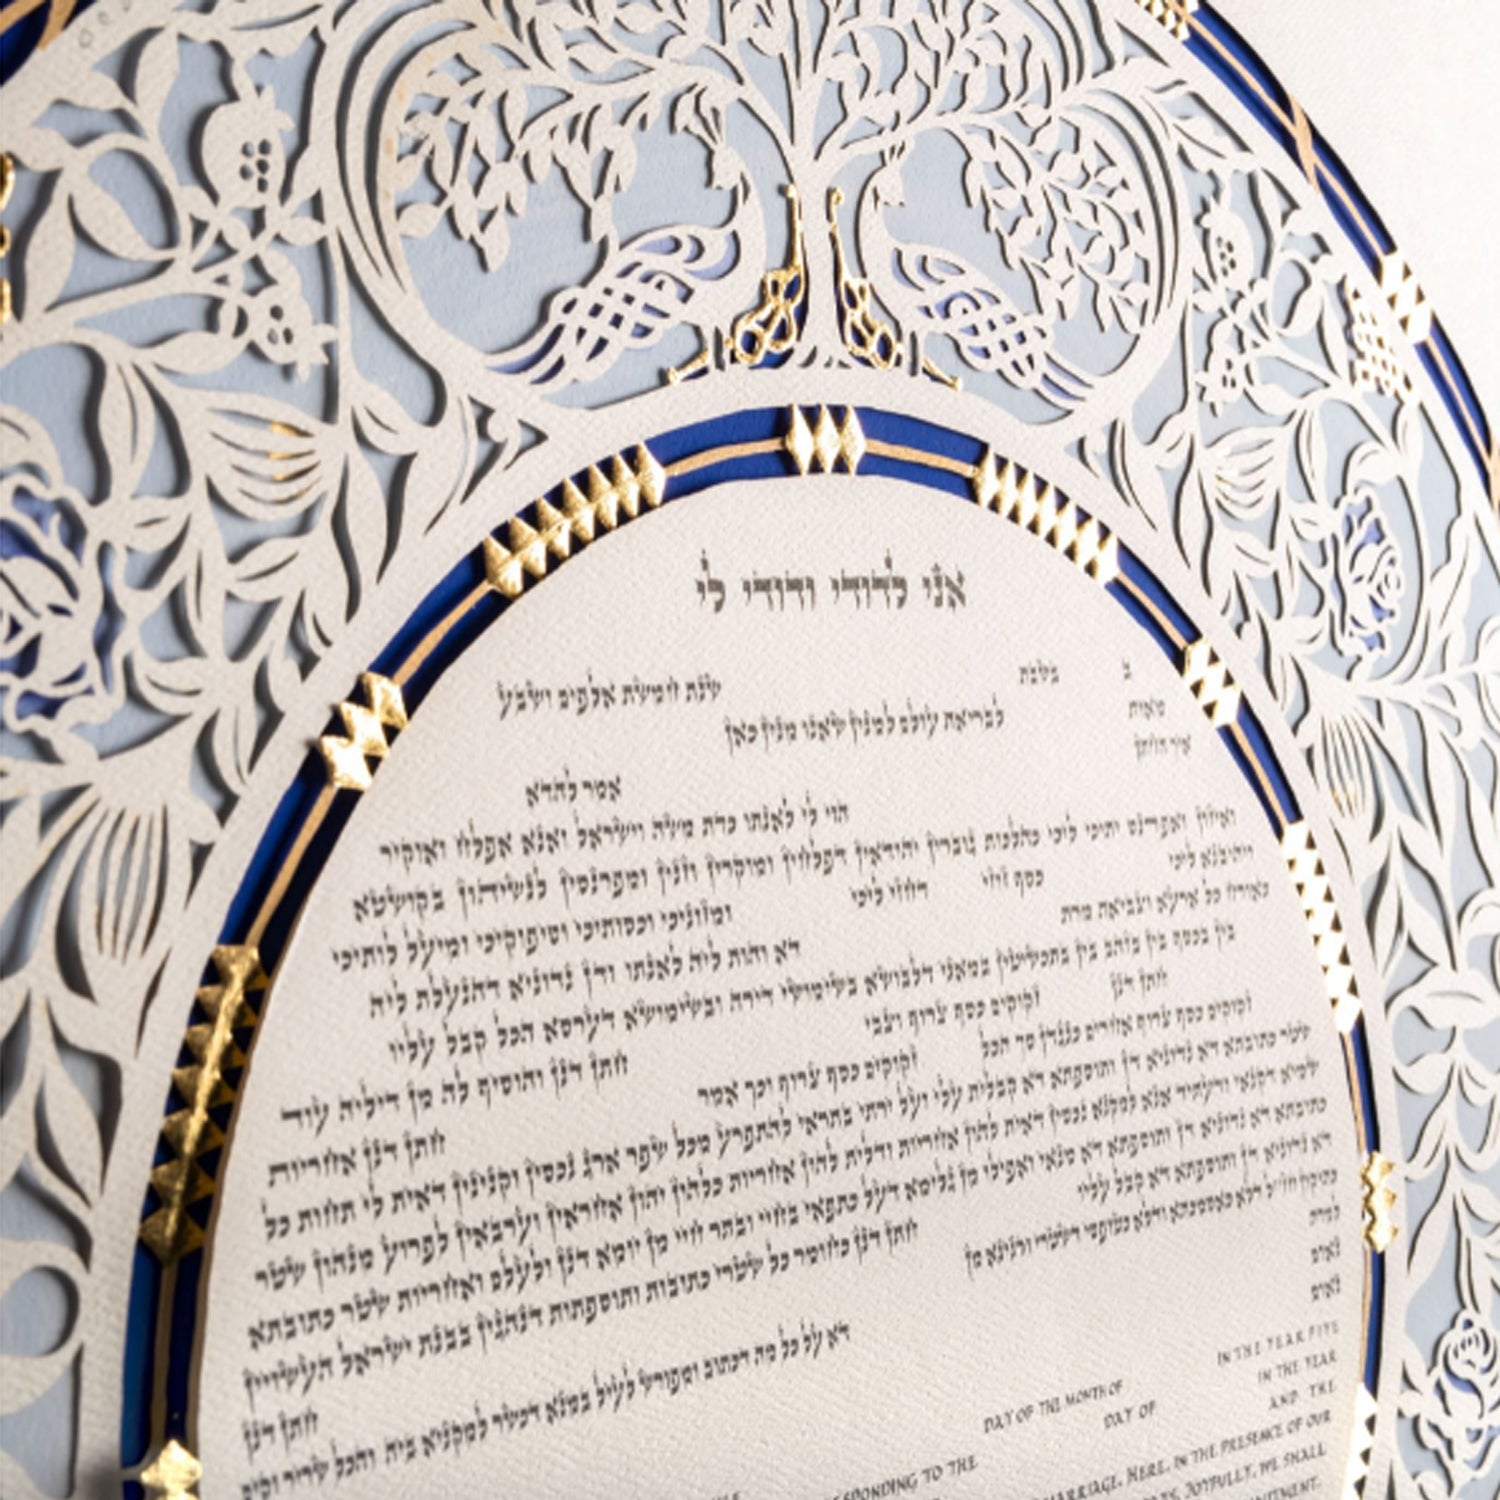 אני לדודי ודודי לי
ב בשבת שנת חמשת אלפים ושבע
מאות לבריאת עולם למנין שאנו מנין כאן
איך החתן אמר להדא
הוי לי לאנתו כדת משה וישראל ואנא אפלח ואוקיר
ואיזון ואפרנס יתיכי ליכי כהלכות גוברין יהודאין דפלחין ומוקרין וזנין ומפרנסין לנשיהון בקושטא
ויהיבנא ליכי כסף זוזי דחזי ליכי ומזוניכי וכסותיכי וסיפוקיכי ומיעל לותיכי
כאורח כל ארעא וצביאת מרת דא והות ליה לאנתו ודן נדוניא דהנעלת ליה
בין בכסף בין בזהב בין בתכשיטין במאני דלבושא בשימושי דירה ובשימושא דערסא הכל קבל עליו
חתן דנן זקוקים כסף צרוף וצבי חתן דנן והוסיף לה מן דיליה עוד
זקוקים כסף צרוף אחרים כנגדן סך הכל זקוקים כסף צרוף וכך אמר חתן דנן אחריות
שטר כתובתא דא נדוניא דן ותוספתא דא קבלית עלי ועל ירתי בתראי להתפרע מכל שפר ארג נכסין וקנינין דאית לי תחות כל
שמיא דקנאי ודעתיד אנא למקנא נכסין דאית להון אחריות ודלית להון אחריות כלהון יהון אחראין וערבאין לפרוע מנהון שטר
כתובתא דא נדוניא דן ותוספתא דא מנאי ואפילו מן גלימא דעל כתפאי בחיי ובתר חיי מן יומא דנן ולעלם ואחריות שטר כתובתא
דא נדוניא דן ותוספתא דא קבל עליו חתן דנן כחומר כל שטרי כתובות ותוספתות דנהגין בבנת ישראל העשויין
כתיקון חז״ל דלא כאסמכתא ודלא כטופסי דשטרי וקנינא מן חתן דנן
למרת דא על כל מה דכתוב ומפורש לעיל במנא דכשר למקניא ביה והכל שריר וקים
נאום
נאום
IN THE YEAR FIVE
DAY OF THE MONTH OF IN THE YEAR
RESPONDING TO THE DAY OF AND THE
MARRIAGE. HERE, IN THE PRESENCE OF OUR
JOYFULLY, WE SHALL